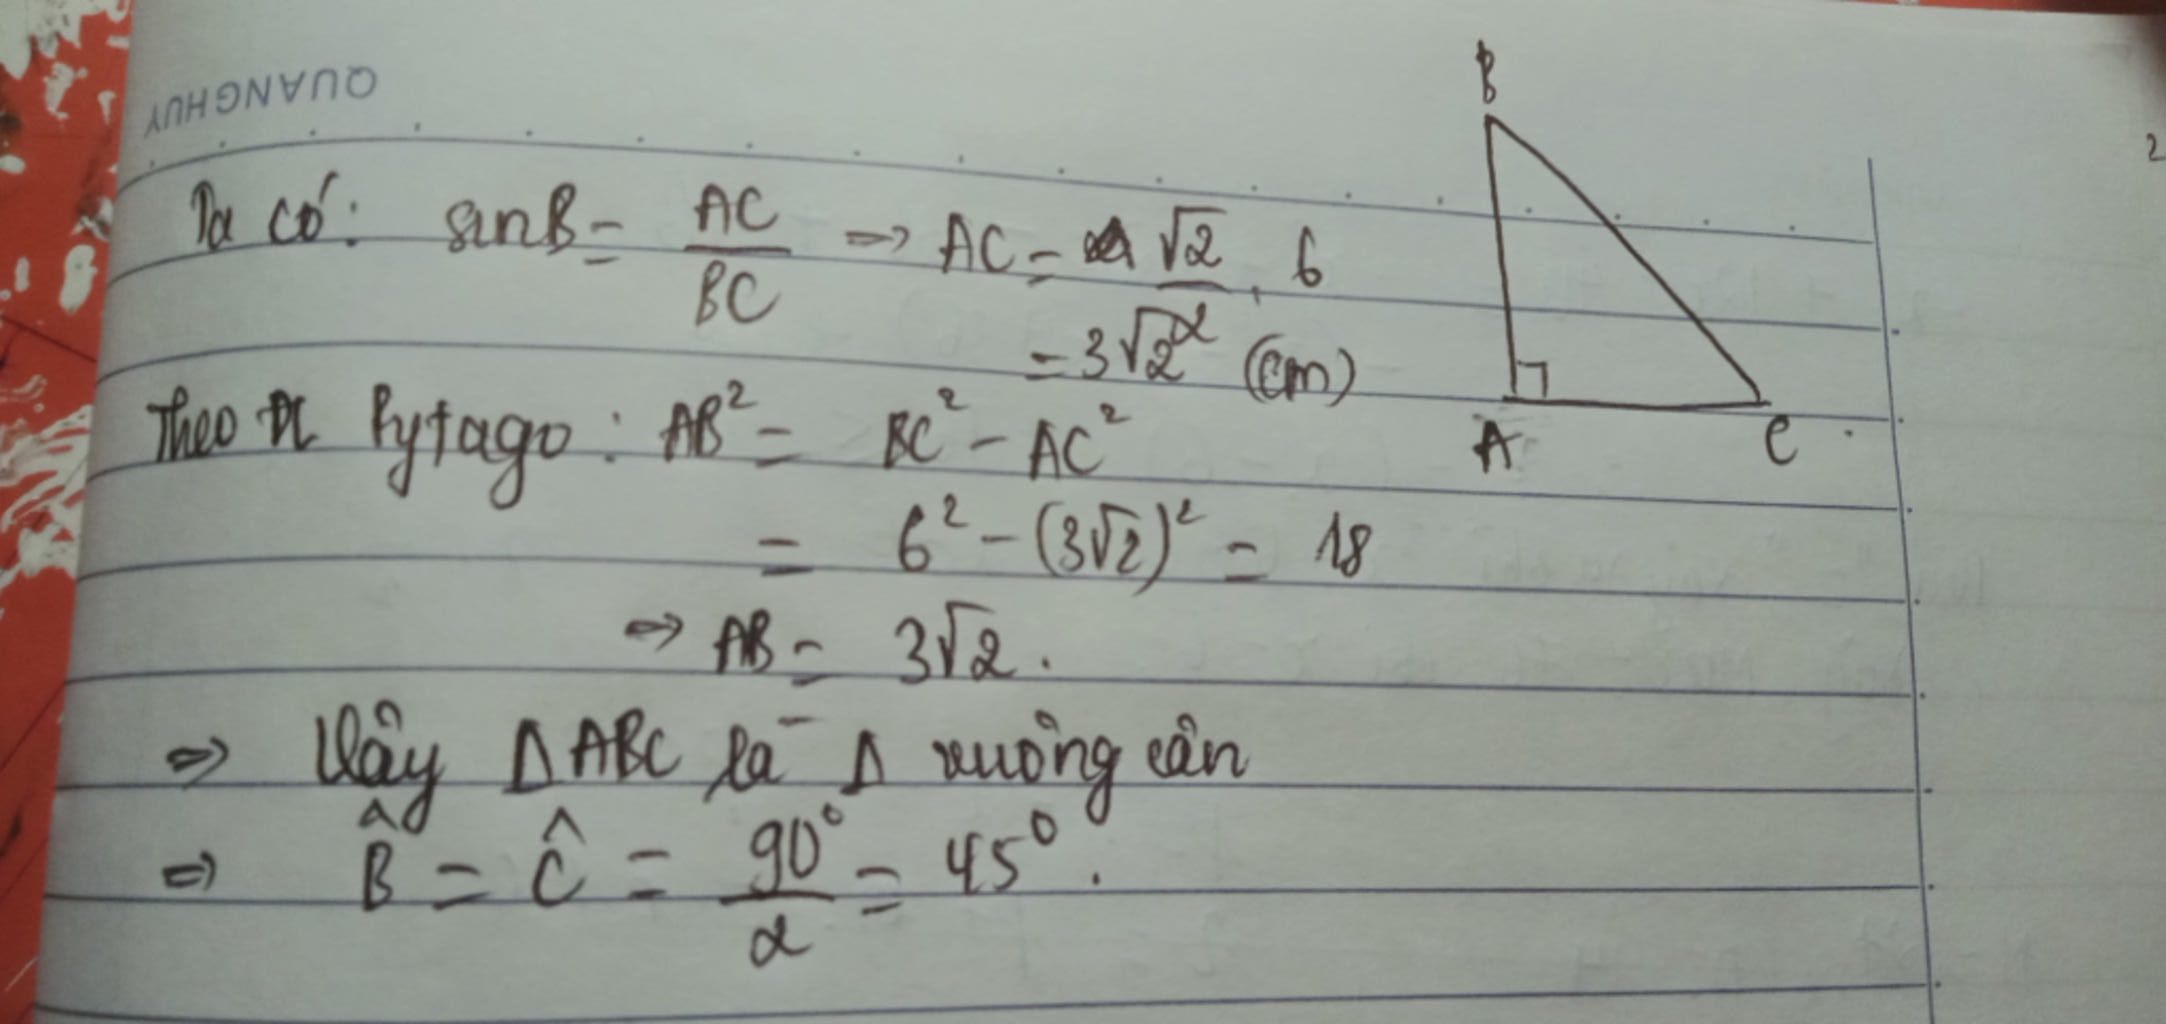 QUANGHUY
Ta có: sinB = AC/BC => AC = √2/2 . 6
= 3√2 (cm)
Theo ĐL Pytago: AB² = BC² - AC²
= 6² - (3√2)² = 18
=> AB = 3√2.
=> Vậy Δ ABC là Δ vuông cân
=> B̂ = Ĉ = 90°/2 = 45°.
B
A
C
2